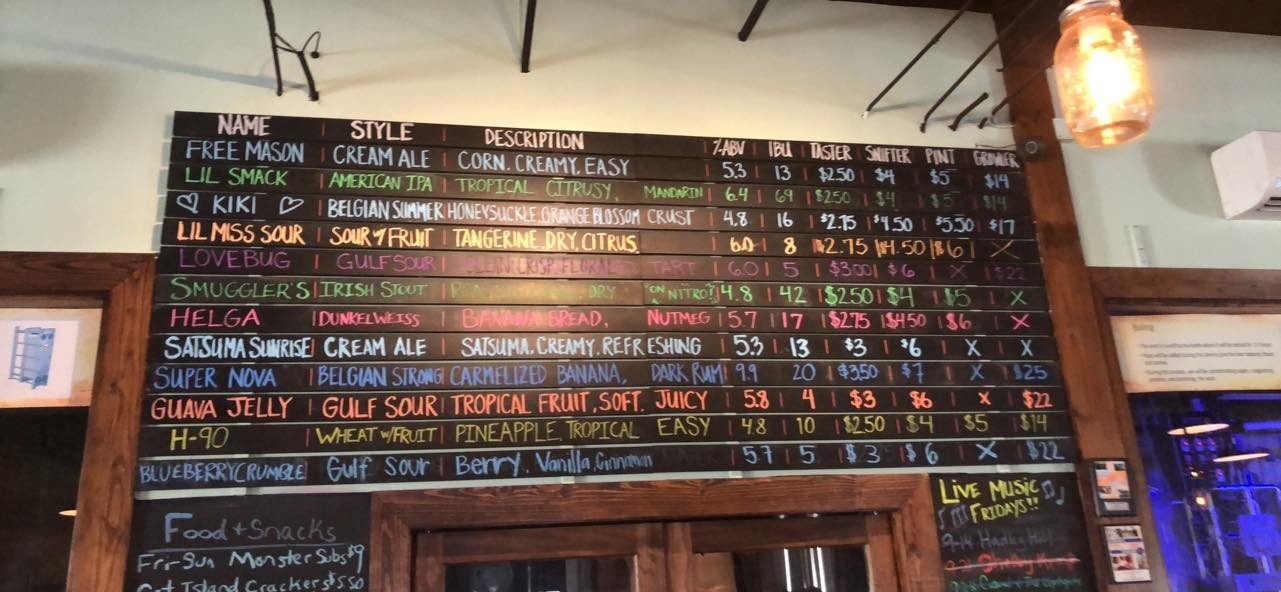 NAME STYLE DESCRIPTION %ABV IBU TASTER SNIFTER PINT GROWLER
FREE MASON CREAM ALE CORN, CREAMY, EASY 5.3 13 $2.50 $4 $5 $14
LIL SMACK AMERICAN IPA TROPICAL CITRUSY, MANDARIN 6.4 69 $2.50 $4 $5 $14
♡ KIKI ♡ BELGIAN SUMMER HONEYSUCKLE, ORANGE BLOSSOM CRUST 4.8 16 $2.75 $4.50 $5.50 $17
LIL MISS SOUR SOUR w/ FRUIT TANGERINE, DRY, CITRUS 6.0 8 $2.75 $4.50 $6 X
LOVEBUG GULF SOUR TART 6.0 5 $3.00 $6 X $22
SMUGGLER'S IRISH STOUT DRY "ON NITRO" 4.8 42 $2.50 $4 $5 X
HELGA DUNKELWEISS BANANA BREAD, NUTMEG 5.7 17 $2.75 $4.50 $6 X
SATSUMA SUNRISE CREAM ALE SATSUMA, CREAMY, REFRESHING 5.3 13 $3 $6 X X
SUPER NOVA BELGIAN STRONG CARMELIZED BANANA, DARK RUM 9.9 20 $3.50 $7 X $25
GUAVA JELLY GULF SOUR TROPICAL FRUIT, SOFT, JUICY 5.8 4 $3 $6 X $22
H-90 WHEAT w/FRUIT PINEAPPLE, TROPICAL EASY 4.8 10 $2.50 $4 $5 $14
BLUEBERRY CRUMBLE Gulf Sour Berry, Vanilla, Cinnamon 5.7 5 $3 $6 X $22
Food + Snacks
Fri-Sun Monster Subs $9
Cat Island Crackers $5.50
LIVE MUSIC
FRIDAYS!!